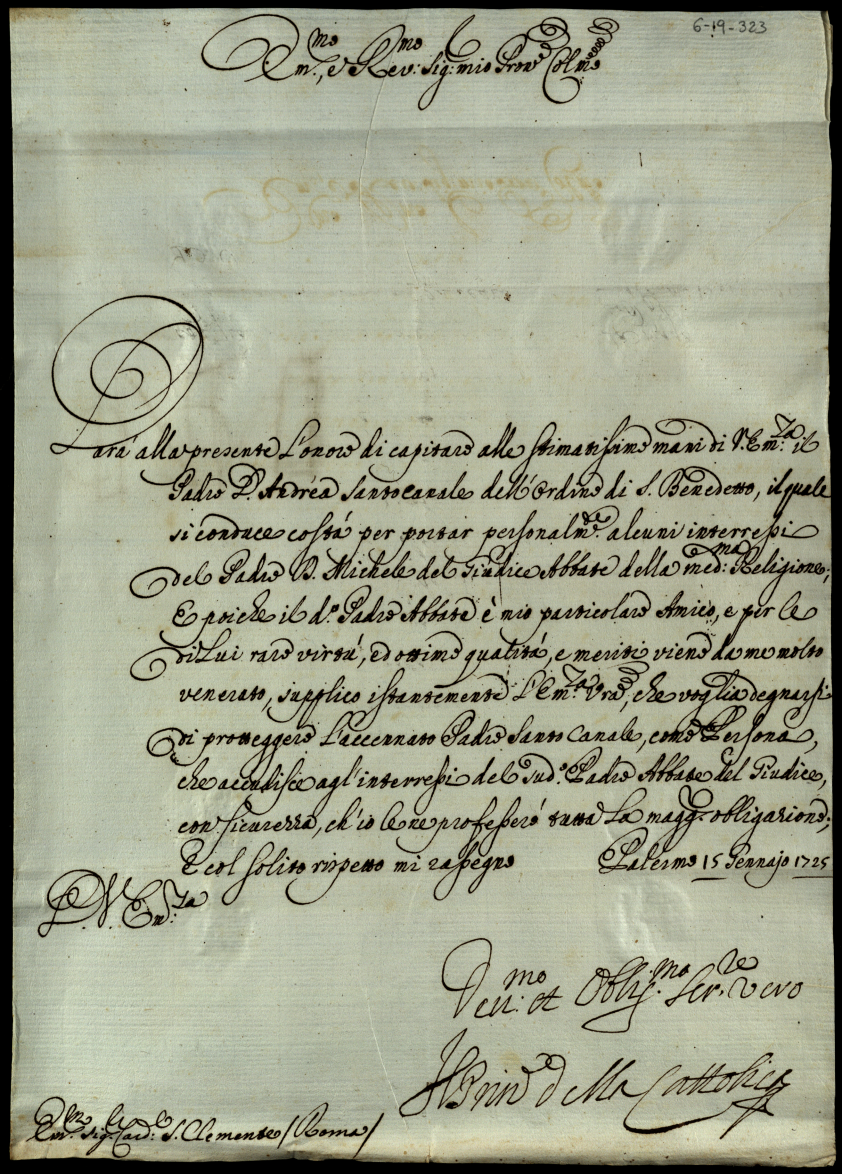 6-19-323
Em.mo, e Rev.mo Sig: mio Pron.e Col.mo
Sarà alla presente l'onore di capitare alle stimatissime mani di V. Em.za il
Padre D. Andrea Santocanale dell'Ordine di S. Benedetto, il quale
si conduce costá per portar personalm.te alcuni interressi
del Padre D. Michele del Giudice Abbate della med.ma Religione;
E poiche il d.o Padre Abbate è mio particolare Amico, e per le
di Lui rare virtú, ed ottime qualitá, e meriti viene da me molto
venerato, supplico istantemente l'Em.za Vra, che voglia degnarsi
di proteggere l'accennato Padre Santo Canale, come Persona,
che accudisce agl'interressi del Sud.o Padre Abbate del Giudice,
con sicurezza, ch'io le ne professeró tutta la magg.r obligazione;
E col solito rispetto mi rassegno Palermo 15 Gennajo 1725
D. V. Em.za
Dev.mo et Obblig.mo Ser.re vero
Il Prin.e della Cattolica
Em. Sig. Card.le S. Clemente (Roma)